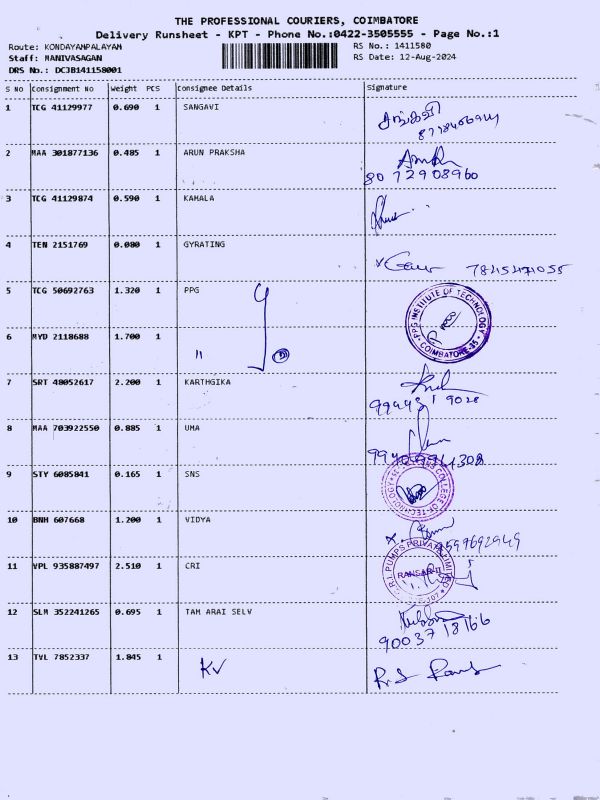 THE PROFESSIONAL COURIERS, COIMBATORE
Delivery Runsheet - KPT - Phone No.:0422-3505555 - Page No.:1
Route: KONDAYAMPALAYAM RS No.: 1411580
Staff: MANIVASAGAN RS Date: 12-Aug-2024
DRS No.: DCJB141158001
S No Consignment No Weight PCS Consignee Details Signature
1 TCG 41129977 0.690 1 SANGAVI சங்கவி
2 MAA 301877136 0.485 1 ARUN PRAKSHA
80 72908960
3 TCG 41129874 0.590 1 KAMALA
4 TEN 2151769 0.080 1 GYRATING
5 TCG 50692763 1.320 1 PPG PPG INSTITUTE OF TECHNOLOGY COIMBATORE-35
6 MYD 2118688 1.700 1 "
7 SRT 48052617 2.200 1 KARTHGIKA
8 MAA 703922550 0.885 1 UMA
9 STY 6085841 0.165 1 SNS COLLEGE OF TECHNOLOGY
10 BNH 607668 1.200 1 VIDYA
11 VPL 935887497 2.510 1 CRI C.R.I. PUMPS PRIVATE LIMITED
12 SLM 352241265 0.695 1 TAM ARAI SELV
90037 18166
13 TVL 7852337 1.845 1 KV